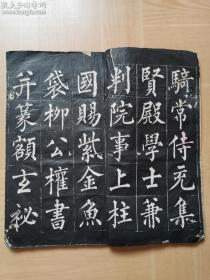 騎常侍充集
賢殿學士兼
判院事上柱
國賜紫金魚
袋柳公權書
并篆額玄祕